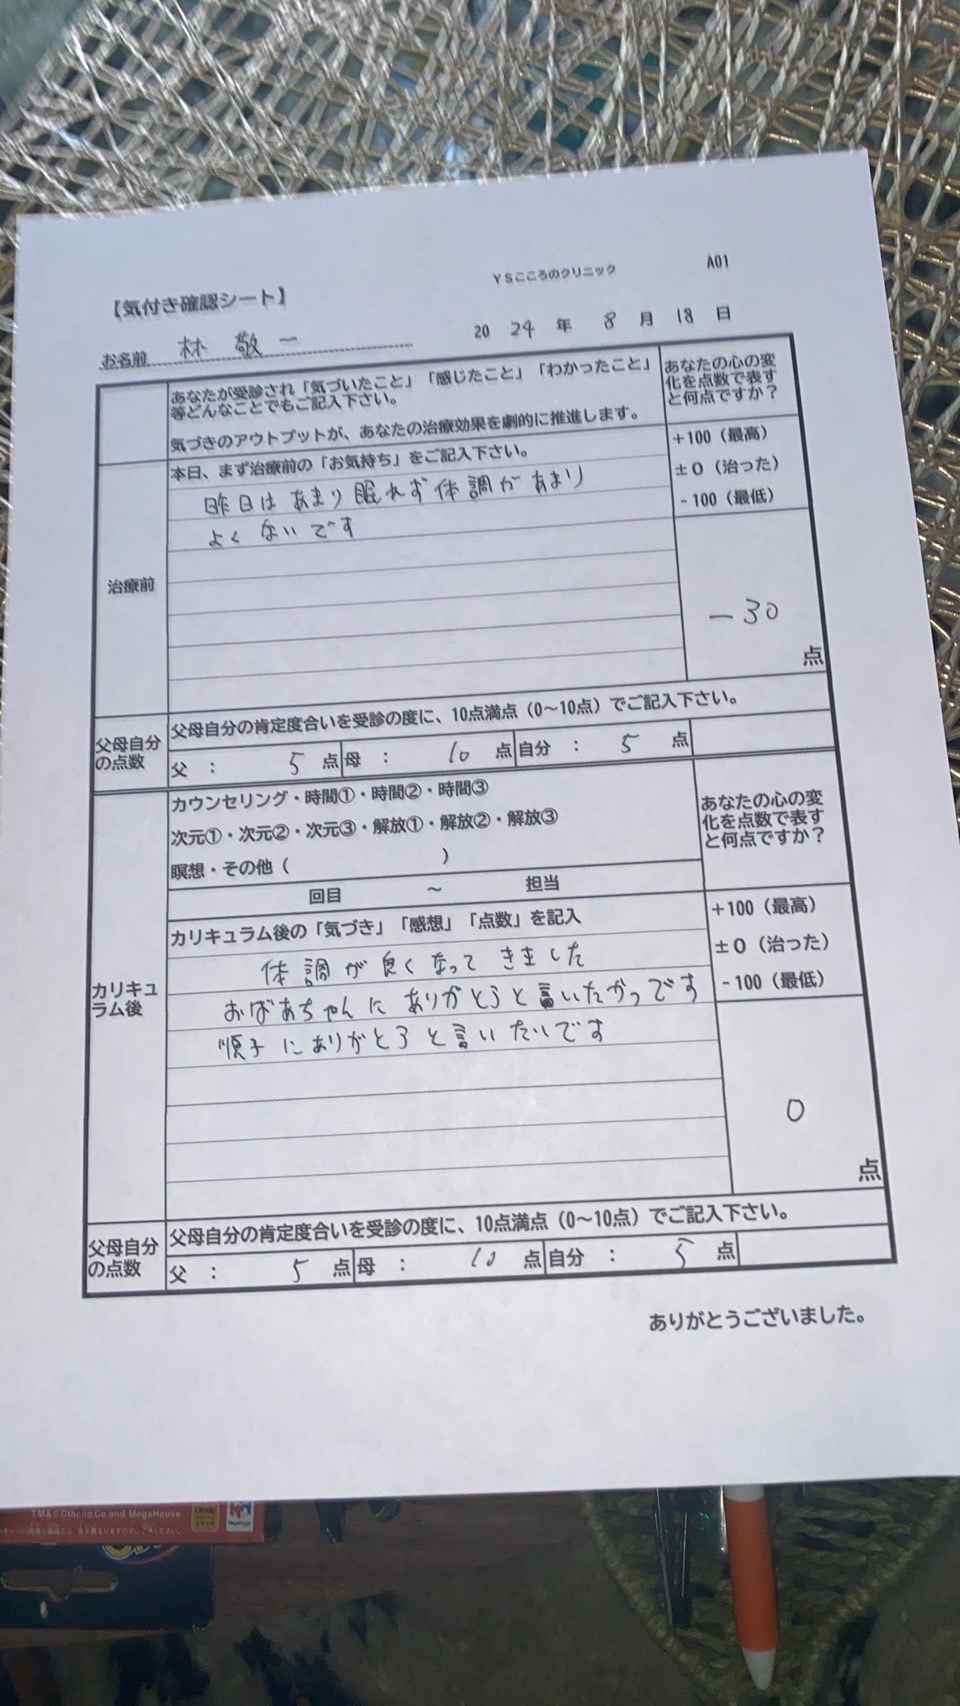 YSこころのクリニック
A01
【気付き確認シート】
お名前 林 敬一
2024年8月18日
あなたが受診され「気づいたこと」「感じたこと」「わかったこと」
等どんなことでもご記入下さい。
気づきのアウトプットが、あなたの治療効果を劇的に推進します。
あなたの心の変
化を点数で表す
と何点ですか？
+100（最高）
±0（治った）
-100（最低）
治療前
本日、まず治療前の「お気持ち」をご記入下さい。
昨日はあまり眠れず体調があまり
よくないです
-30
点
父母自分
の点数
父母自分の肯定度合いを受診の度に、10点満点（0～10点）でご記入下さい。
父：5点 母：10点 自分：5点
カリキュ
ラム後
カウンセリング・時間①・時間②・時間③
次元①・次元②・次元③・解放①・解放②・解放③
瞑想・その他（ ）
回目 ～ 担当
あなたの心の変
化を点数で表す
と何点ですか？
+100（最高）
±0（治った）
-100（最低）
カリキュラム後の「気づき」「感想」「点数」を記入
体調が良くなってきました
おばあちゃんにありがとうと言いたかっです
順子にありがとうと言いたいです
0
点
父母自分
の点数
父母自分の肯定度合いを受診の度に、10点満点（0～10点）でご記入下さい。
父：5点 母：10点 自分：5点
ありがとうございました。
TM&©Othello,Co and MegaHouse